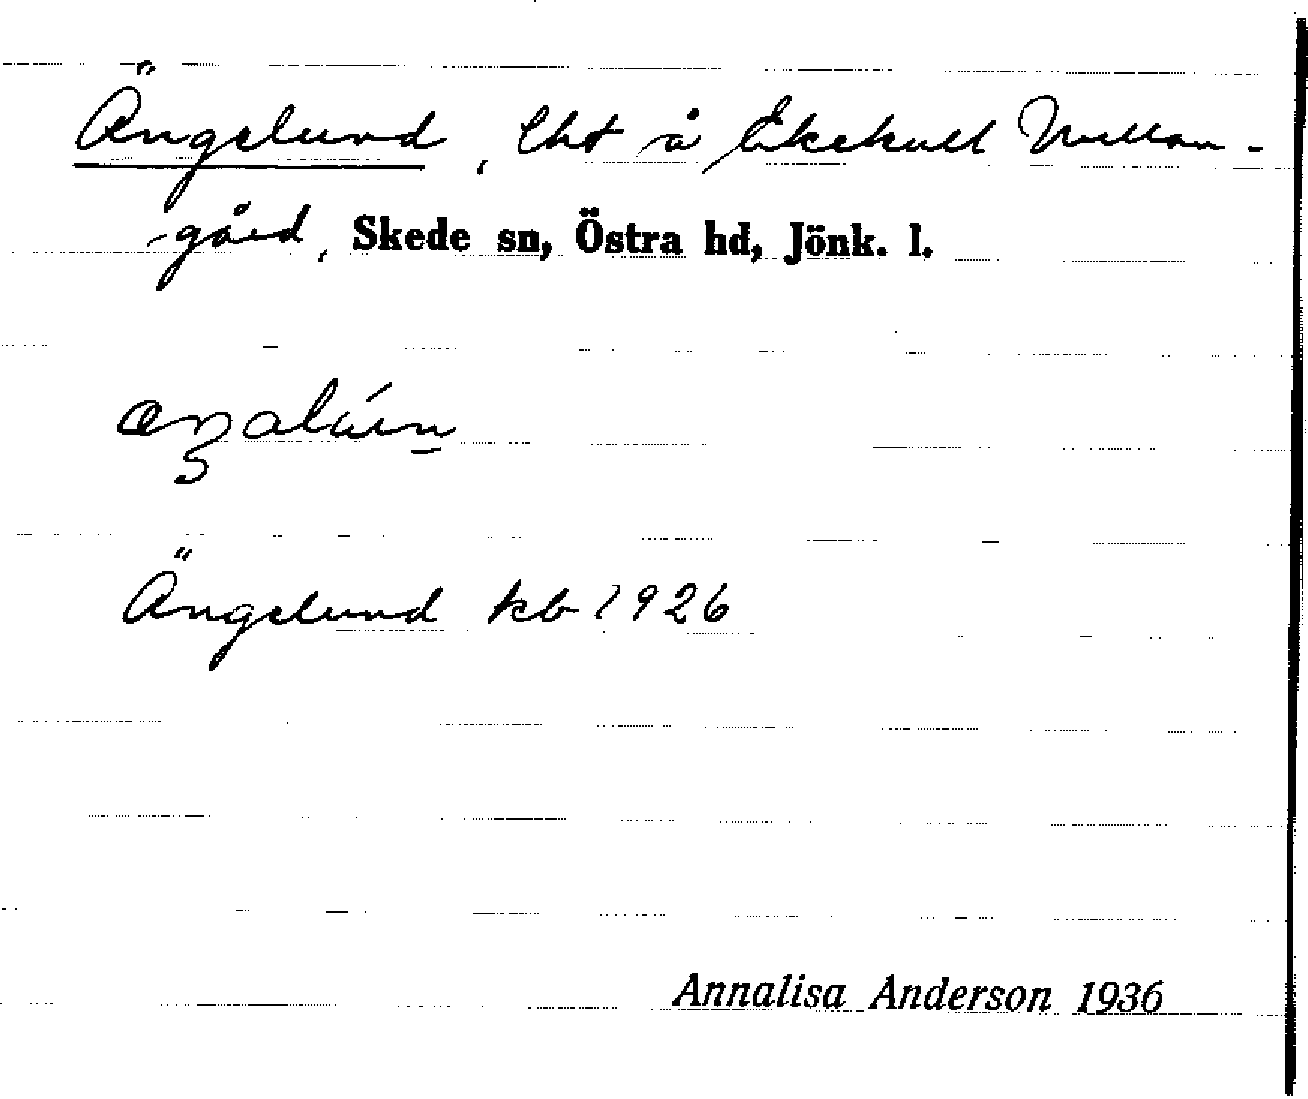 Ängelund, lht å Ekekull Mellan-
-gård, Skede sn, Östra hd, Jönk. l.
Ängelund kb 1926
Annalisa Anderson 1936